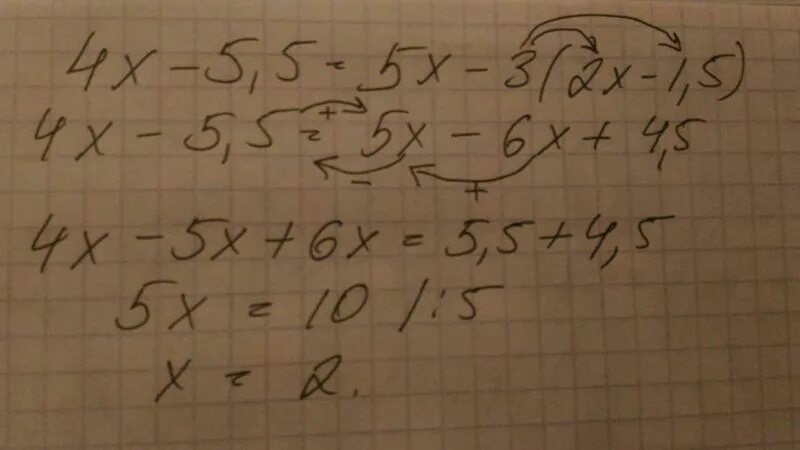 4x - 5,5 = 5x - 3(2x - 1,5)
4x - 5,5 = 5x - 6x + 4,5
+
- +
4x - 5x + 6x = 5,5 + 4,5
5x = 10 /:5
x = 2.